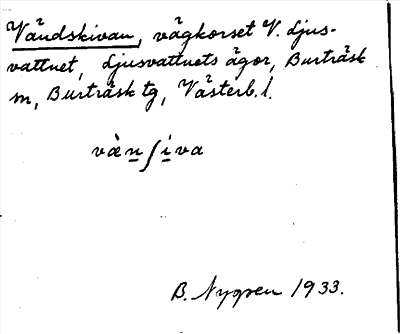 Vändskivan, vägkorset V. Ljus-
vattnet, Ljusvattnets ägor, Burträsk
m, Burträsk tg, Västerb. l.
vȧ̀n̲ʃi̲va
B. Nygren 1933.